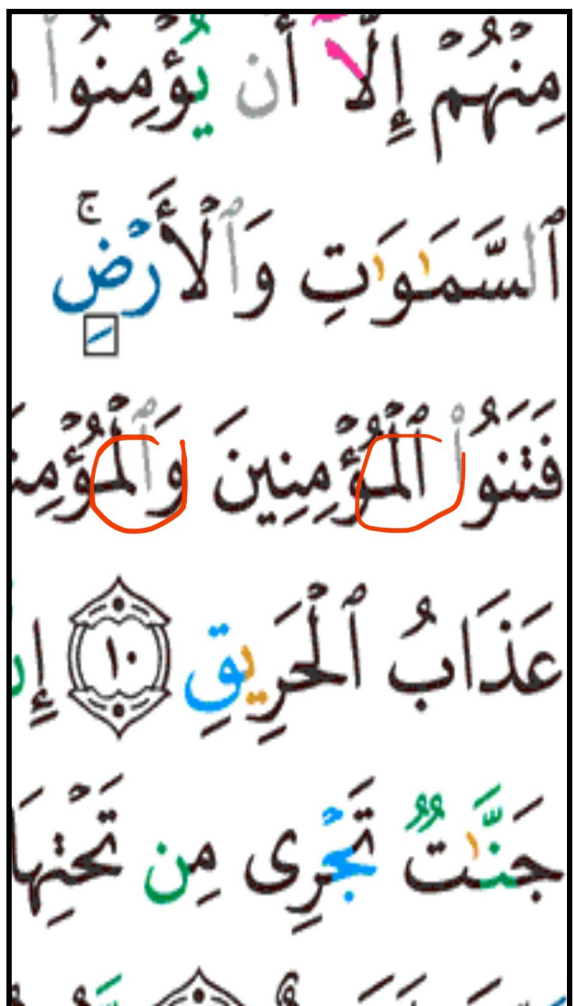 مِنْهُمْ إِلَّآ أَن يُؤْمِنُوا۟
ٱلسَّمَـٰوَٰتِ وَٱلْأَرْضِ ۚ
فَتَنُوا۟ ٱلْمُؤْمِنِينَ وَٱلْمُؤْمِنَ
عَذَابُ ٱلْحَرِيقِ ١٠
جَنَّـٰتٌ تَجْرِى مِن تَحْتِهَا